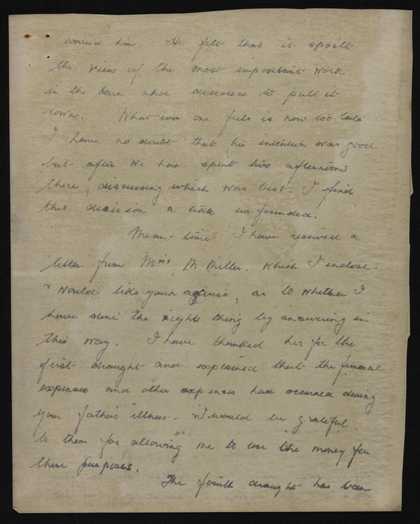 him. He felt that it spoilt
the view of the most important work
in the and decided to pull it
down. What one feels is now too late
I have no doubt that his intention was good
but after we had spent two afternoons
there, discussing which was best - I find
this decision a little
Mean-time I have received a
letter from Miss M Miller. which I enclose -
& would like your advice, as to whether I
have done the right thing by answering in
this way. I have thanked her for the
first draught and explained that the funeral
expenses and other expenses have occurred during
your father's illness - & would be grateful
to them for allowing me to use the money for
these purposes.
The fourth draught has been